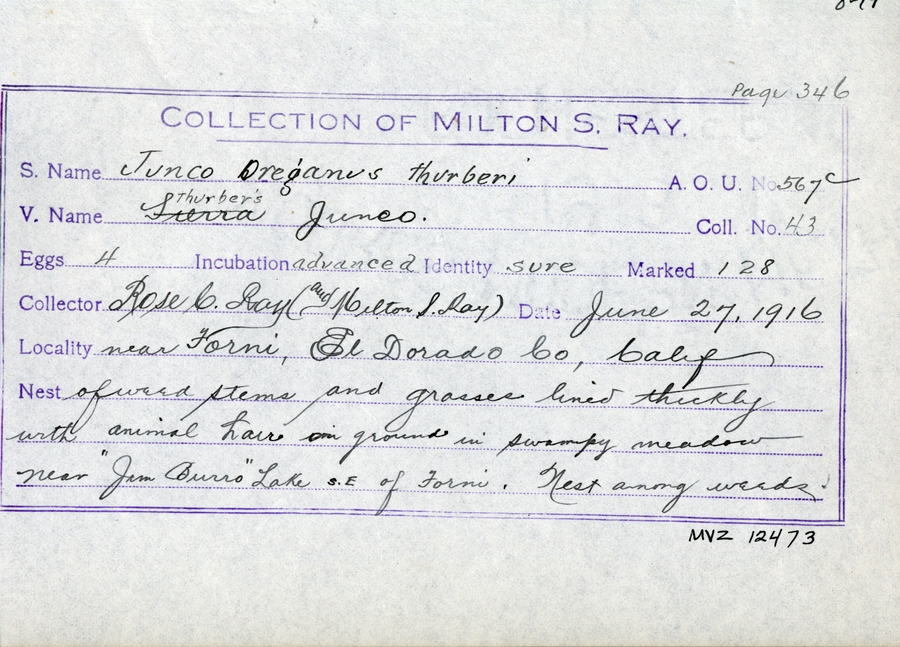 Page 346
COLLECTION OF MILTON S. RAY.
S. Name Junco Oreganus thurberi A. O. U. No. 567c
Thurber's
V. Name Sierra Junco. Coll. No. 43
Eggs 4 Incubation advanced Identity sure Marked 128
Collector Rose C. Ray (and Milton S. Ray) Date June 27, 1916
Locality near Forni, El Dorado Co, Calif
Nest of weed stems and grasses lined thickly
with animal hair in ground in swampy meadow
near "Jim Burro" Lake S.E of Forni. Nest among weeds.
MVZ 12473